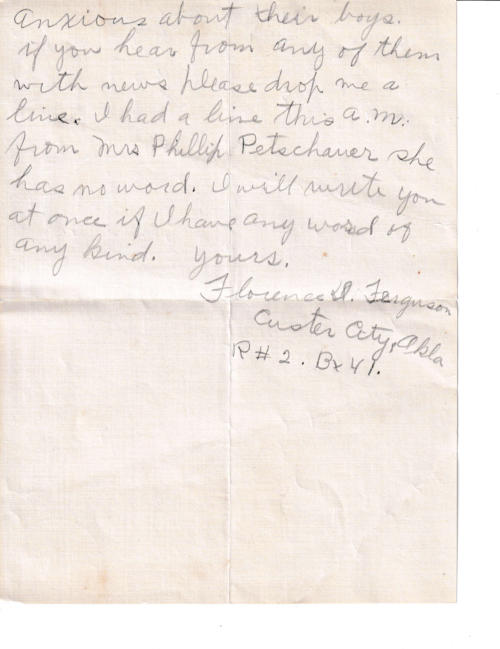 anxious about their boys.
if you hear from any of them
with news please drop me a
line. I had a line this a.m.
from Mrs Phillip Petschauer she
has no word. I will write you
at once if I have any word of
any kind. Yours.
Florence D. Ferguson
Custer City, Okla
R # 2. Bx 41.